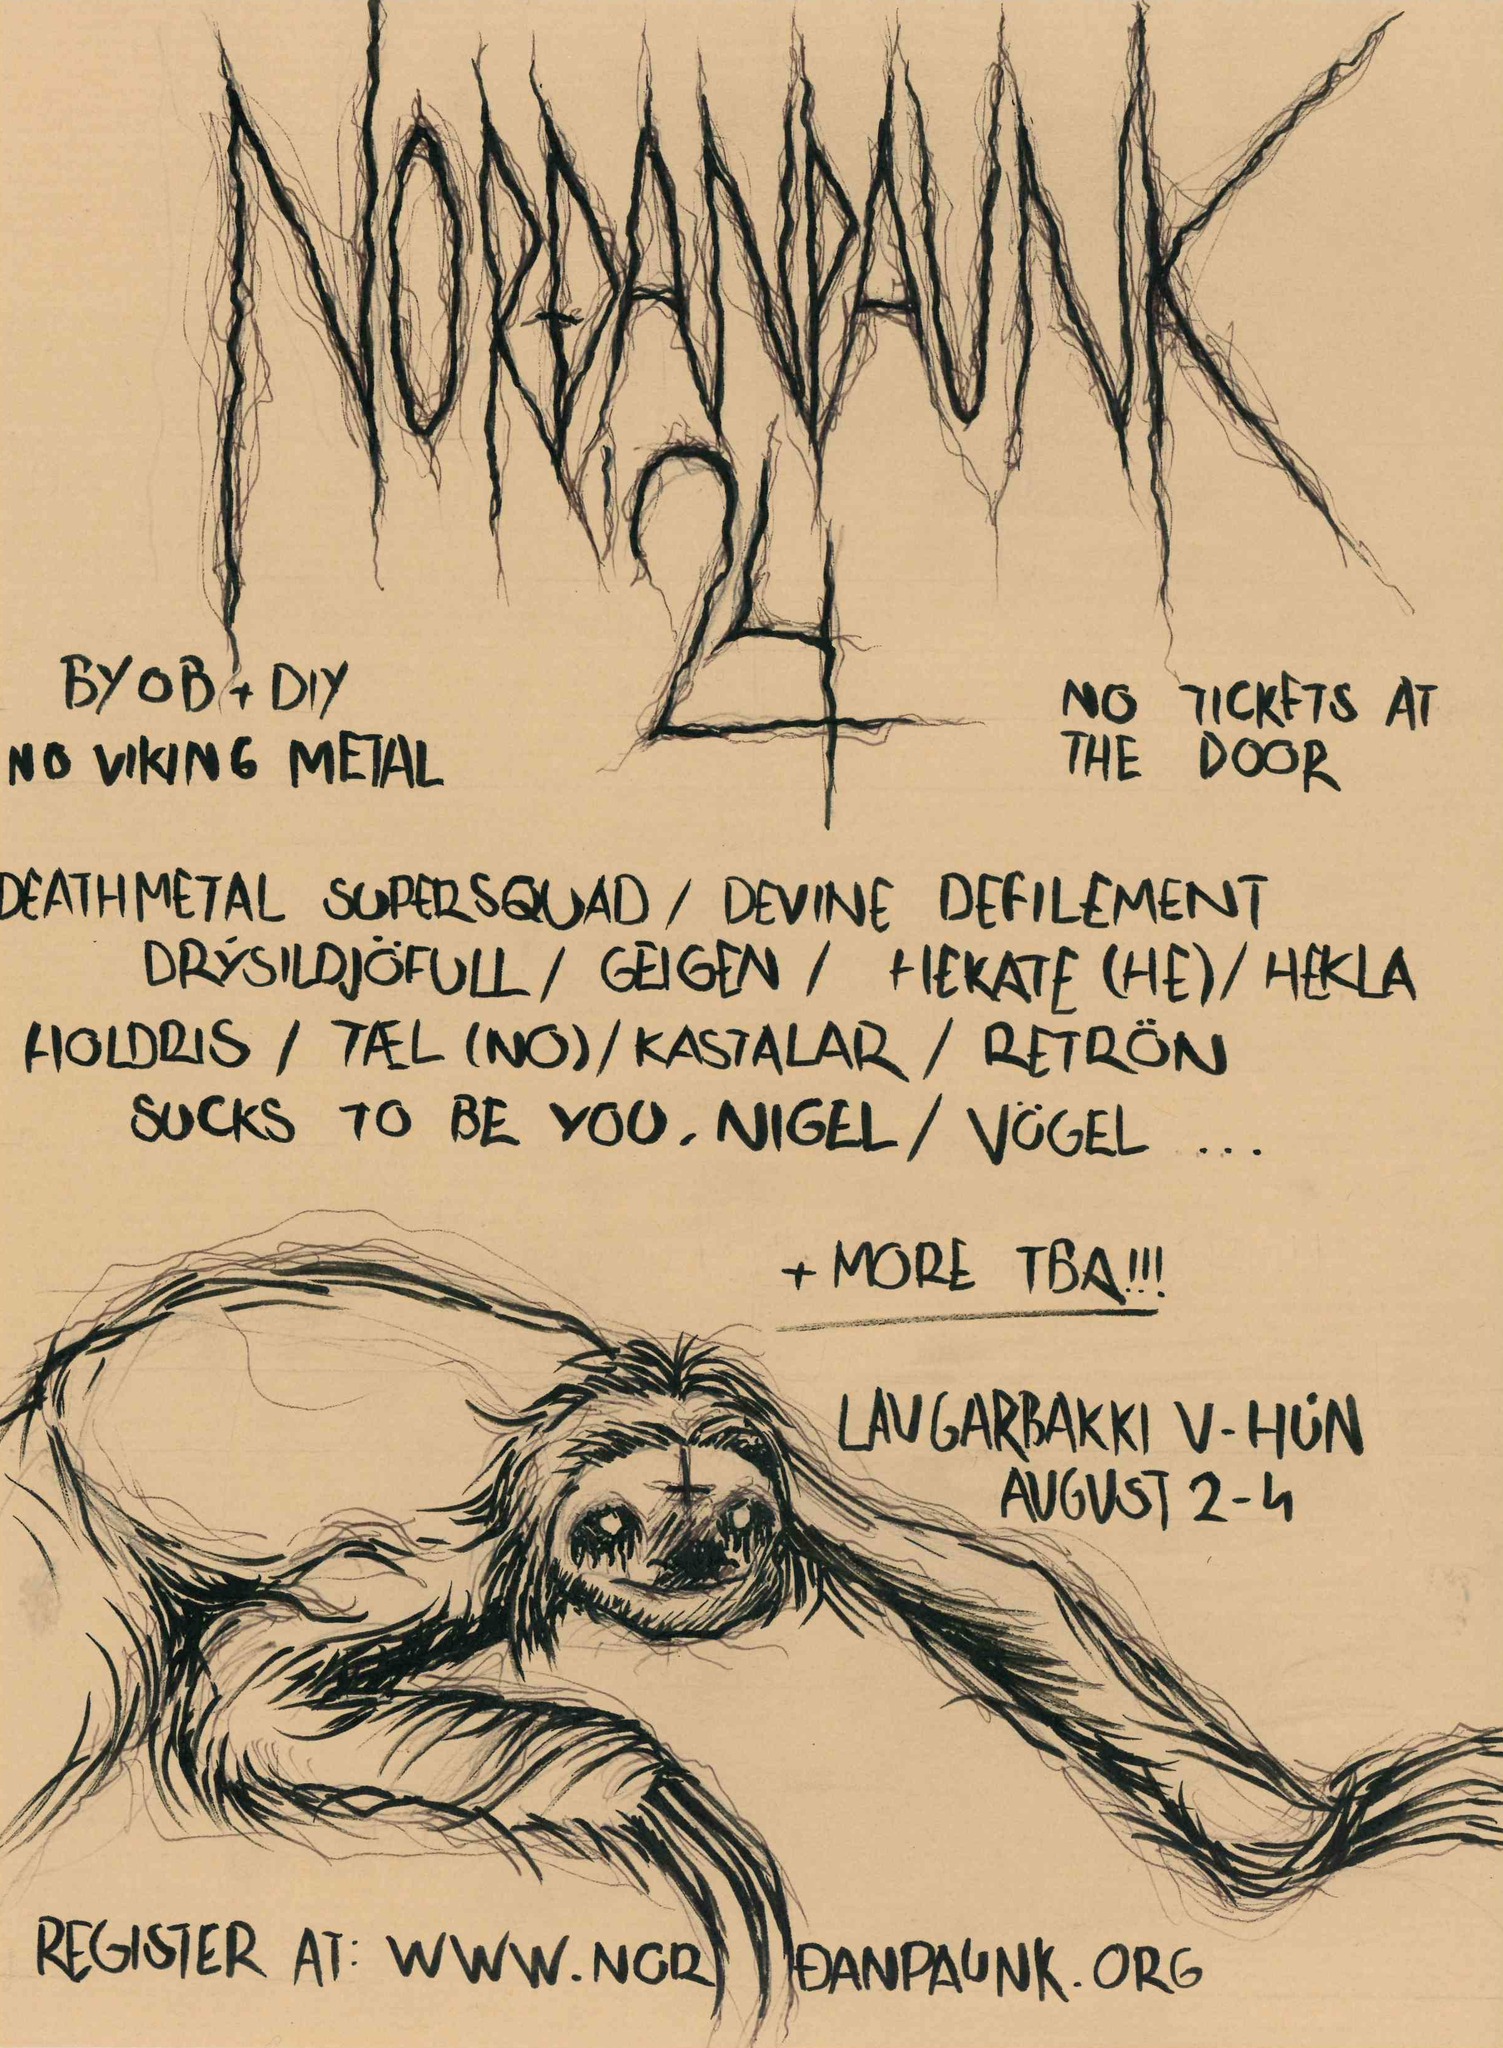 NORÐANPAUNK
'24
BYOB + DIY
NO VIKING METAL
NO TICKETS AT
THE DOOR
DEATHMETAL SUPERSQUAD / DEVINE DEFILEMENT
DRÝSILDJÖFULL / GEIGEN / HEKATE (HE) / HEKLA
HOLDRIS / TÆL (NO) / KASTALAR / RETRÖN
SUCKS TO BE YOU, NIGEL / VÖGEL ...
+ MORE TBA!!!
LAUGARBAKKI V-HÚN
AUGUST 2-4
REGISTER AT: WWW.NORÐANPAUNK.ORG